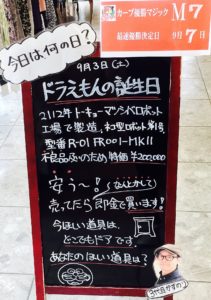 カープ優勝マジック M7
最速優勝決定日 9月7日
今日は何の日?
9月3日(土)
ドラえもんの誕生日
2112年トーキョーマツシバロボット
工場で製造、ネコ型ロボット第1号
型番R-01 FR001-MKII
不良品扱いのため、特価¥200,000
安う〜!(なんとかして)
売ってたら即金で買います!
今ほしい道具は、
どこでもドアです
あなたのほしい道具は?
3代目かずのり